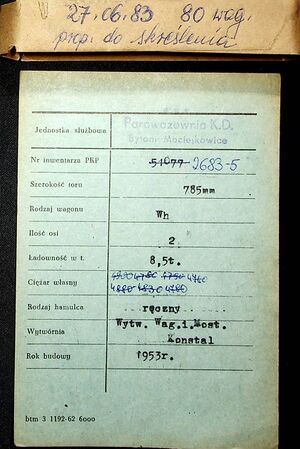 27.06.83 80 wag.
prop. do skreślenia
Jednostka służbowa Parowozownia K.D.
Bytom Maciejkowice
Nr inwentarza PKP 51077 2683-5
Szerokość toru 785mm
Rodzaj wagonu Wh
Ilość osi 2
Ładowność w t. 8,5t.
Ciężar własny 4780 4750 4760
4880 4830 4780
Rodzaj hamulca ręczny
Wytw. Wag.i.Most.
Wytwórnia Konstal
Rok budowy 1953r.
btm 3 1192-62 6000